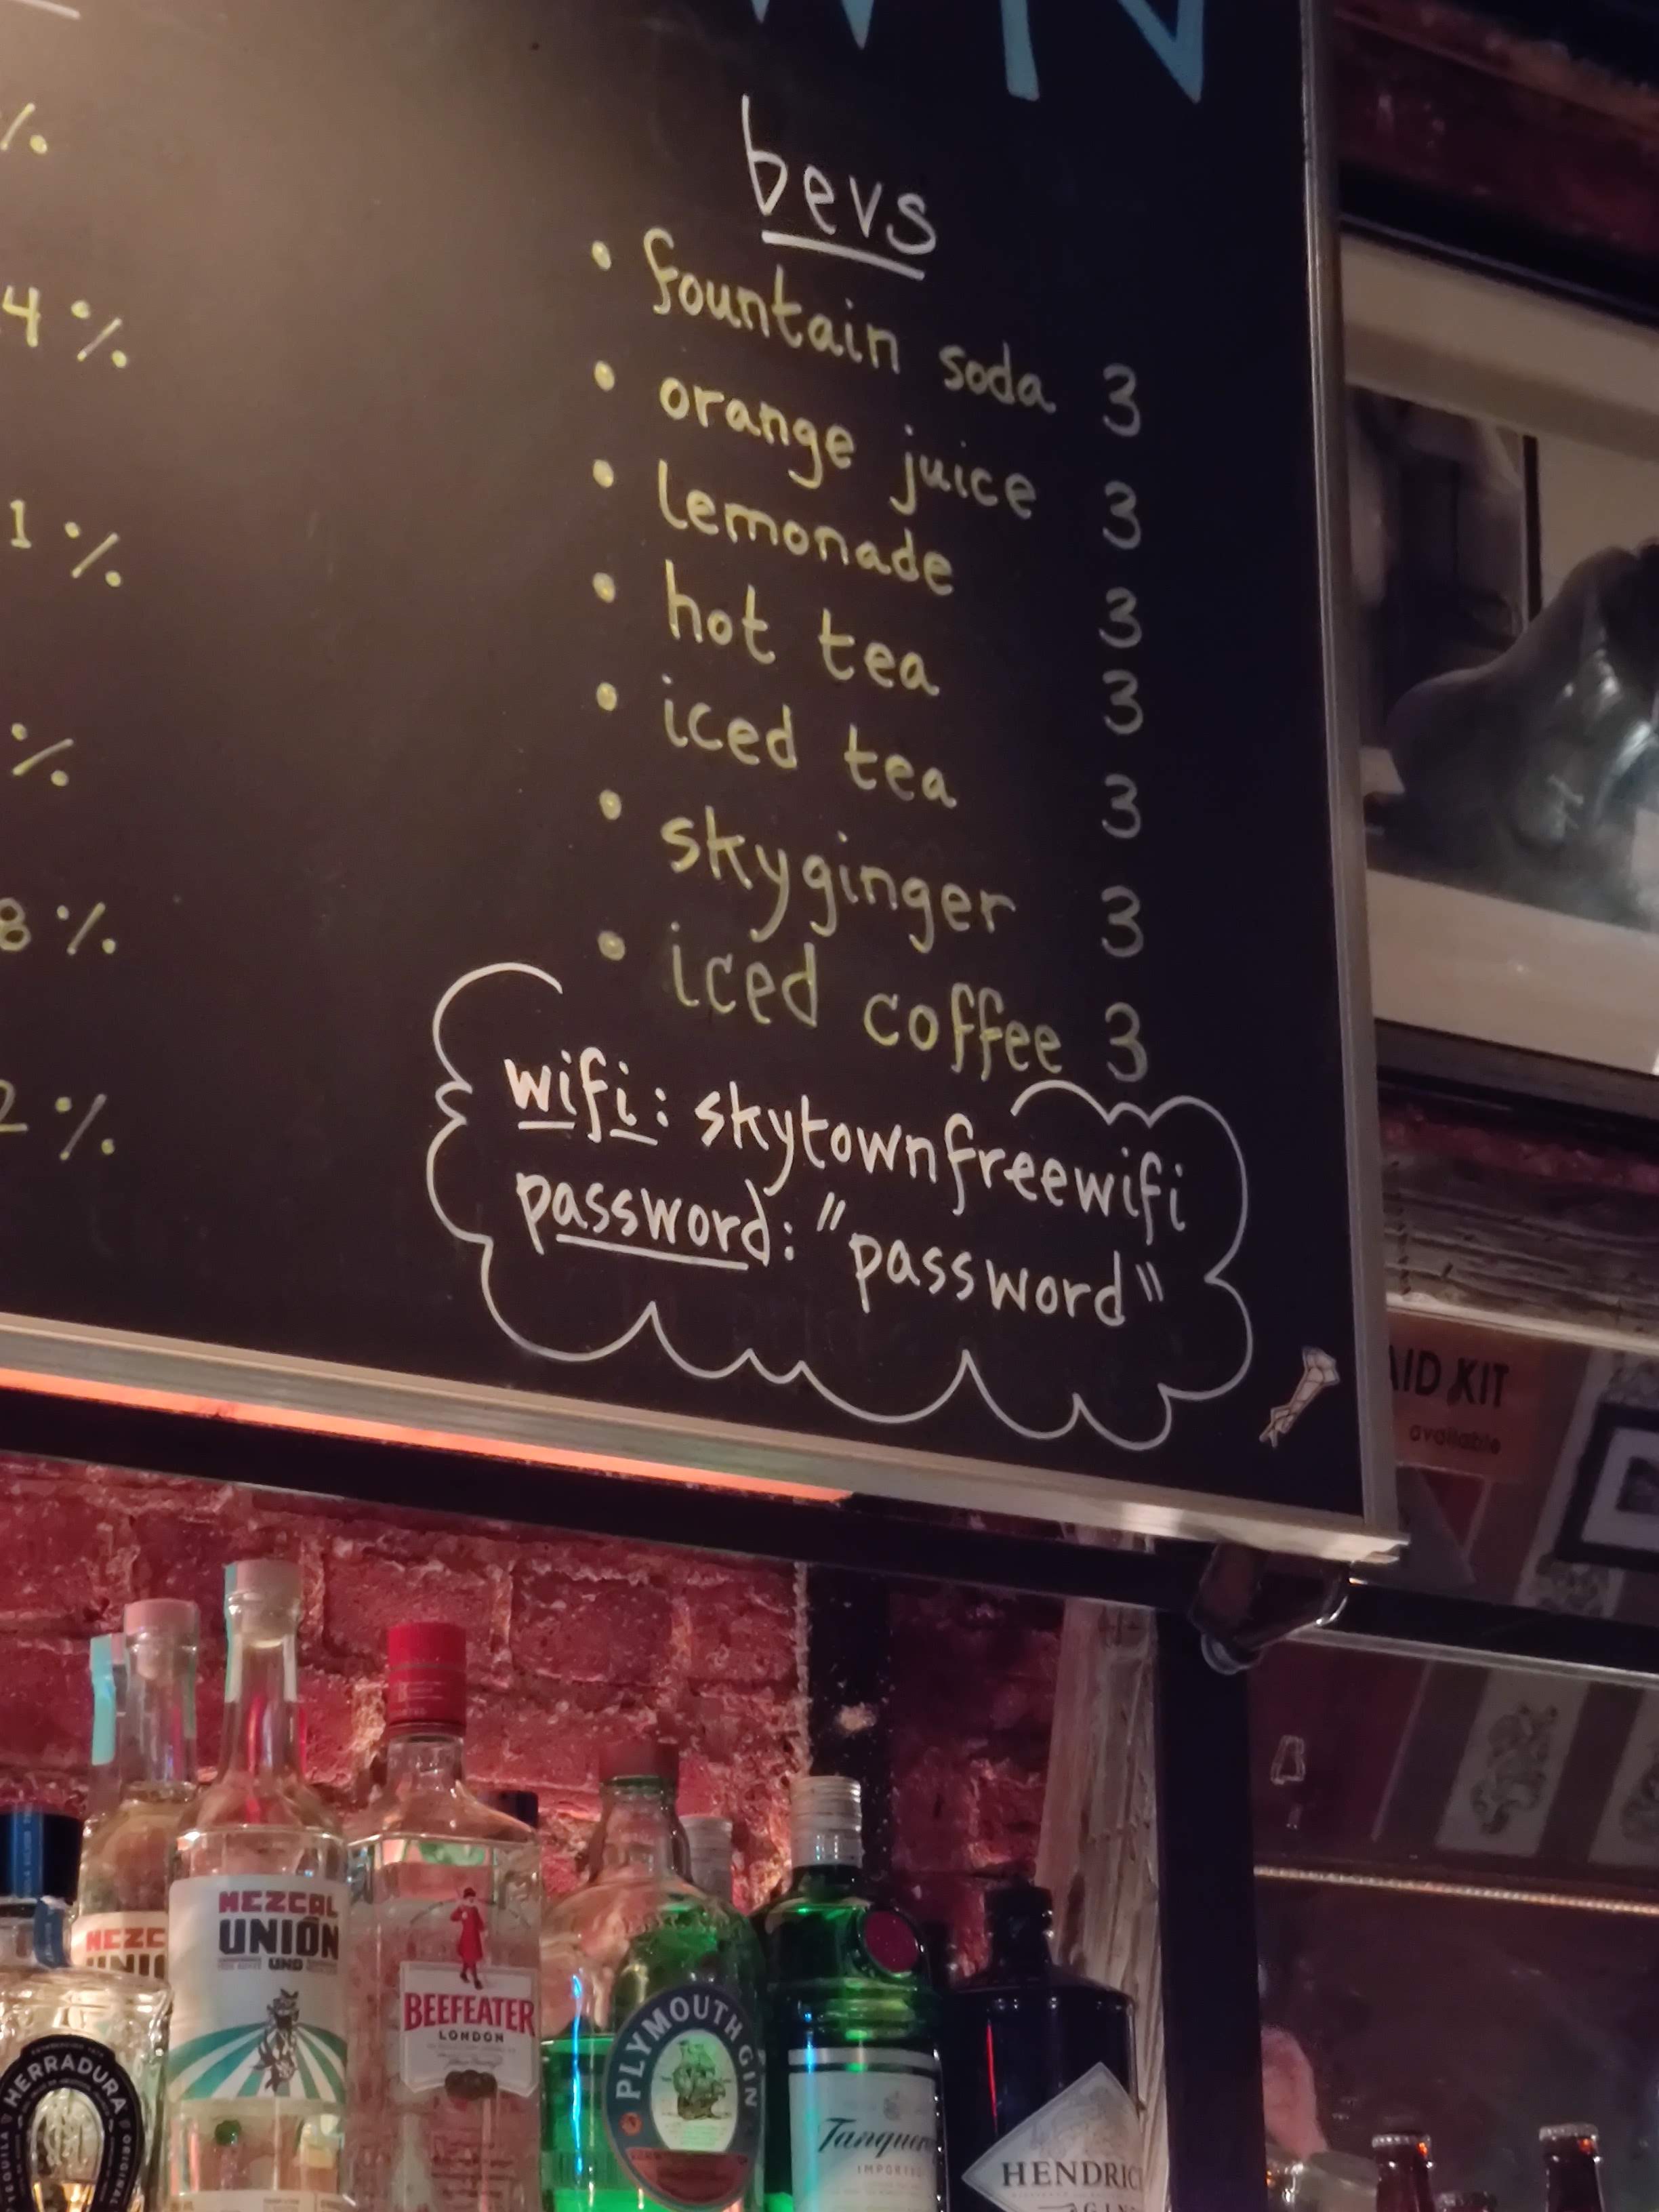 %
4%
1%
%
8%
2%
bevs
• fountain soda 3
• orange juice 3
• lemonade 3
• hot tea 3
• iced tea 3
• skyginger 3
• iced coffee 3
wifi: skytownfreewifi
password: "password"
AID KIT
available
MEZCAL
UNIÓN
UNO
MEZC
UNI
BEEFEATER
LONDON
PLYMOUTH GIN
Tanquer
IMPORTED
HENDRIC
GIN
HERRADURA
TEQUILA
ORIGINAL